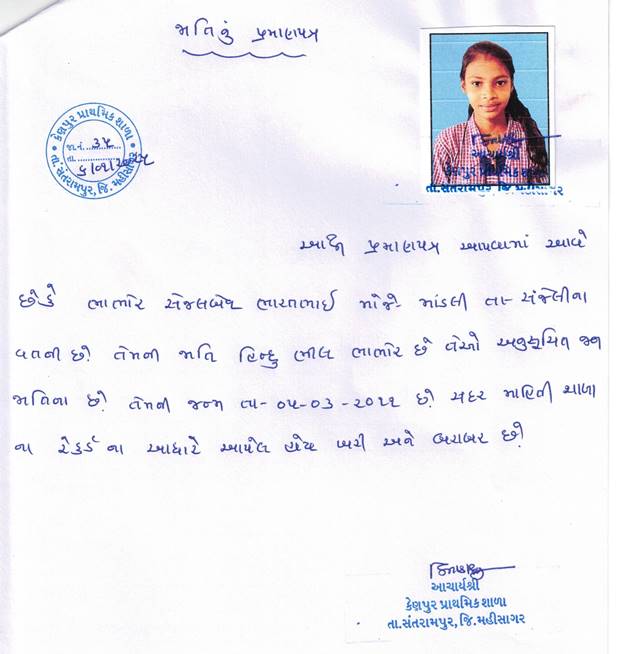 જાતિનું પ્રમાણપત્ર
કેણપુર પ્રાથમિક શાળા
જા.નં. ૩૫
તા.
તા. સંતરામપુર, જિ. મહીસાગર
આચાર્યશ્રી
કેણપુર પ્રાથમિક શાળા
તા. સંતરામપુર જિ. મહીસાગર
આથી પ્રમાણપત્ર આપવામાં આવે
છેકે ભાભોર સેજલબેન ભારતભાઈ મોજે માંડલી તા- સંજેલીના
વતની છે. તેમની જાતિ હિન્દુ ભીલ ભાભોર છે તેઓ અનુસૂચિત જન
જાતિના છે. તેમની જન્મ તા- ૦૫-૦૩-૨૦૧૧ છે. સદર માહિતી શાળા
ના રેકર્ડ ના આધારે આપેલ હોય ખરી અને બરાબર છે.
આચાર્યશ્રી
કેણપુર પ્રાથમિક શાળા
તા.સંતરામપુર,જિ.મહીસાગર